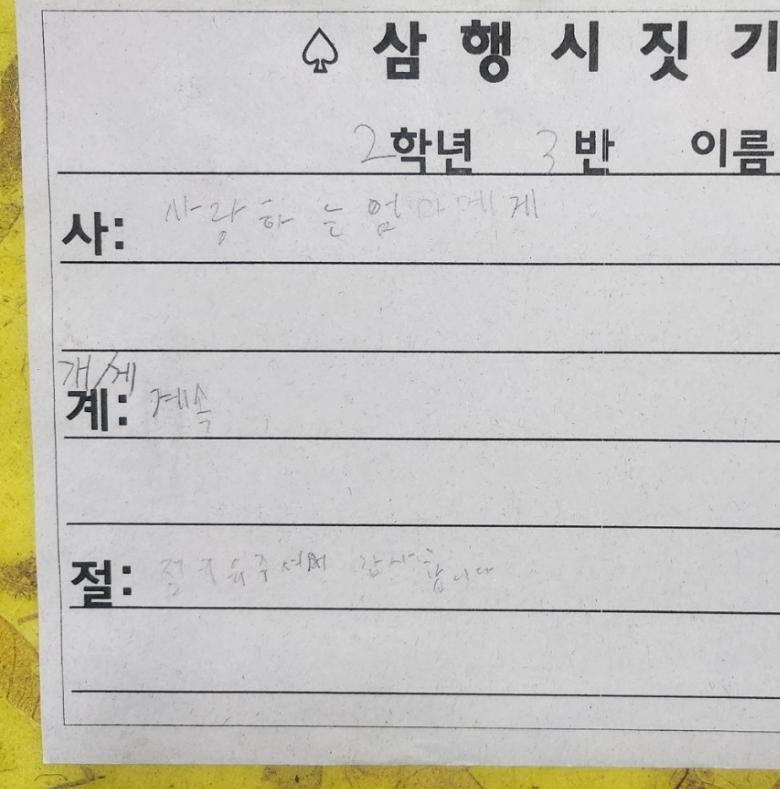 ♤ 삼 행 시 짓 기
2학년 3반 이름
사: 사랑하는엄마에게
개/세
계: 계속
절: 감사합니다